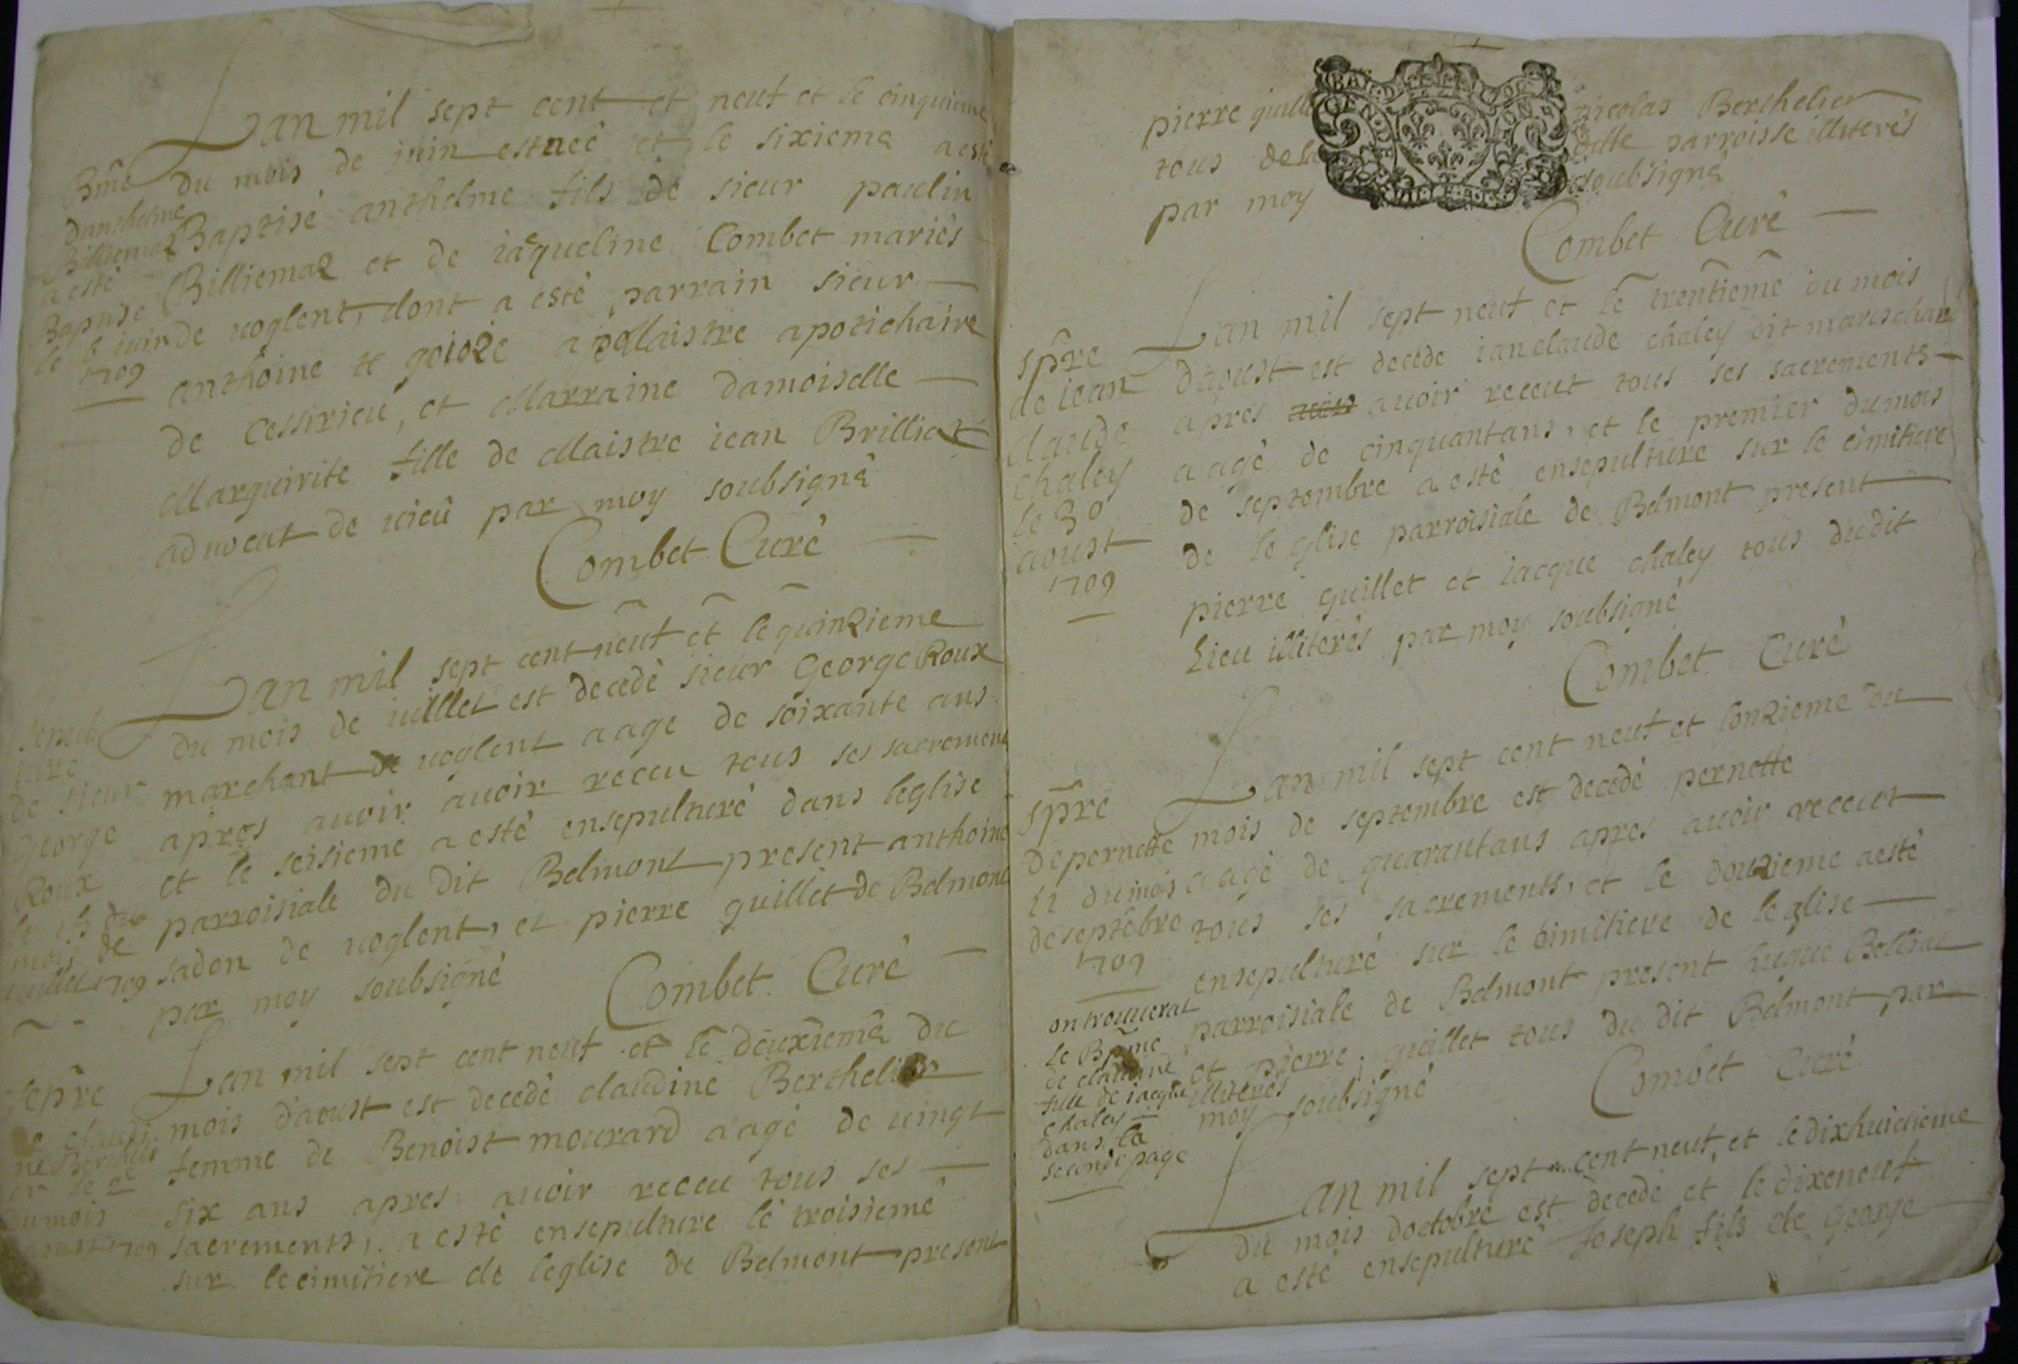 Lan mil sept cent et neuf et le cinquieme
du mois de iuin est neé et le sixieme a esté
Baptisé anthelme fils de sieur paulin
Billiemaz et de iaqueline Combet mariés
de uoglent, dont a esté parrain sieur
anthoine Maistre apotichaire
de Cessirieu, et Marraine damoiselle
Marguirite fille de Maistre iean Brilliat
advocat de uieû par moy soubsigné
Combet Curé
Bme
danthelme
Billiemaz
a esté
Baptisé
le 6 iuin
1709
Lan mil sept cent neuf et le quinzieme
du mois de iuillet est decedé sieur George Roux
marchant de uoglent aage de soixante ans
apres auoir auoir receu tous ses sacrement
et le seisieme a esté ensepulturé dans leglise
parroisiale du dit Belmont present anthoine
sadon de uoglent, et pierre guillet de Belmont
par moy soubsigné
Combet Curé
de sieur
George
Roux
le 15 du
mois de
iuillet 1709
Lan mil sept cent neuf et le deuxieme du
mois daoust est decedé claudine Berthelier
femme de Benoist mourard aagé de uingt
six ans apres auoir receu tous ses
sacrements, a esté ensepulture le troisieme
sur le cimitiere de leglise de Belmont present
sepre
de claudi
ne Bertheli
er le 2e
du mois
1709
pierre guill nicolas Berthelier
tous de la ditte parroisse illiterés
par moy soubsigné
Combet Curé
Lan mil sept neuf et le trentieme du mois
daoust est decede ian claude chaley dit mareschan
apres auoir receut tous ses sacrements
aagé de cinquantans, et le premier du mois
de septembre a esté ensepulture sur le cimitiere
de le glise parroisiale de Belmont present
pierre guillet et iacque chaley tous dudit
lieu illiterés par moy soubsigné
Combet Curé
spre
de iean
claude
chaley
le 30
aoust
1709
Lan mil sept cent neuf et lonzieme du
mois de septembre est decedé pernette
aagé de quarantans apres auoir receut
tous ses sacrements, et le douzieme a esté
ensepulturé sur le cimitiere de leglise
parroisiale de Belmont present Belliat
et pierre guillet tous du dit Belmont par
illiterés
moy soubsigné
Combet Curé
spre
de pernette
11 du mois
de septebre
1709
on trouuerat
le Bpme
de claudine
fille de iacque
chaley
dans la
seconde page
Lan mil sept cent neuf, et le dixhuitieme
du mois doctobre est decedé et le dixeneuf
a esté ensepulturé Joseph fils de George